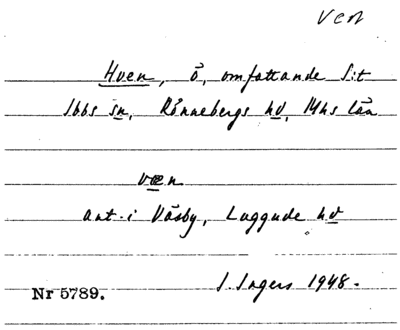 Ven
Hven, ö, omfattande S:t
Ibbs sn, Rönnebergs hd, Mhs län
væn
ant. i Väsby, Luggude hd
Nr 5789.
I. Ingers 1948.